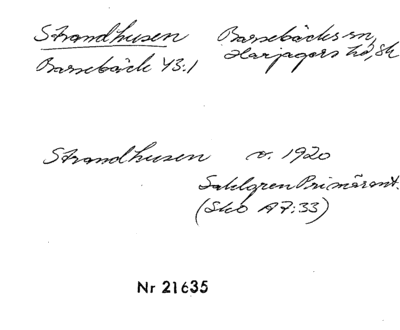 Strandhusen Barsebäcks sn,
Barsebäck 43:1 Harjagers hd, Sk
Strandhusen v. 1920
Sahlgren Primärant.
(Sko A7:33)
Nr 21635